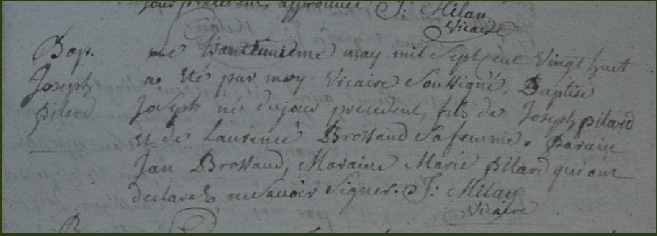 jour precedent, approuvé, J: Milan
Vicaire
Bap.
Joseph
pilard
Le vantunieme may mil sept cent vingt huit
a été par moy Vicaire Soussigné, Baptise
Joseph né du jour precedent, fils de Joseph pilard
et de Laurence Brossaud sa femme. Parain
Jan Brossaud, Maraine Marie Pilard qui ont
declaré ne savoir signer. J: Milan
Vicaire